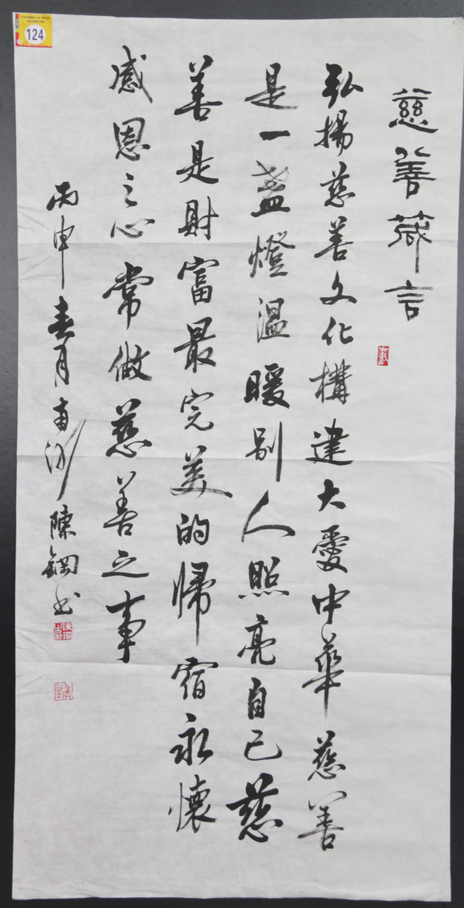 慈善箴言
弘揚慈善文化構建大愛中華慈善
是一盞燈溫暖別人照亮自己慈
善是財富最完美的歸宿永懷
感恩之心常做慈善之事
丙申春月南沙陳鋼書
124